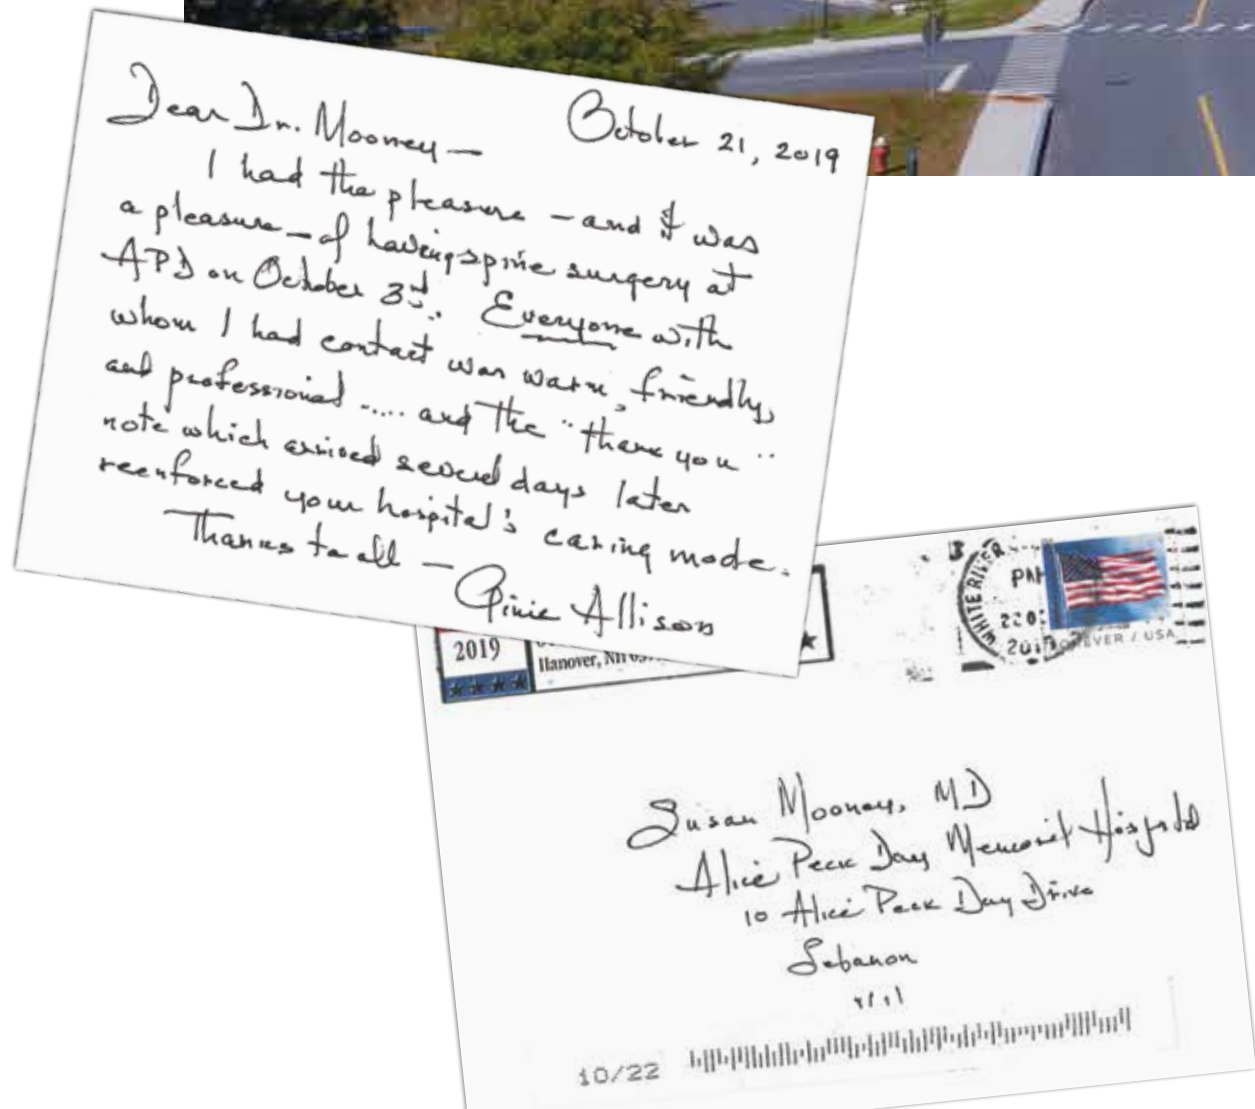 October 21, 2019
Dear Dr. Mooney —
I had the pleasure – and it was
a pleasure – of having spine surgery at
APD on October 3rd. Everyone with
whom I had contact was warm, friendly,
and professional ..... and the "thank you"
note which arrived several days later
reenforced your hospital's caring mode.
Thanks to all — Ginie Allison
2019
Hanover, NH
WHITE RIVER
PM
FOREVER / USA
Susan Mooney, MD
Alice Peck Day Memorial Hospital
10 Alice Peck Day Drive
Lebanon
10/22